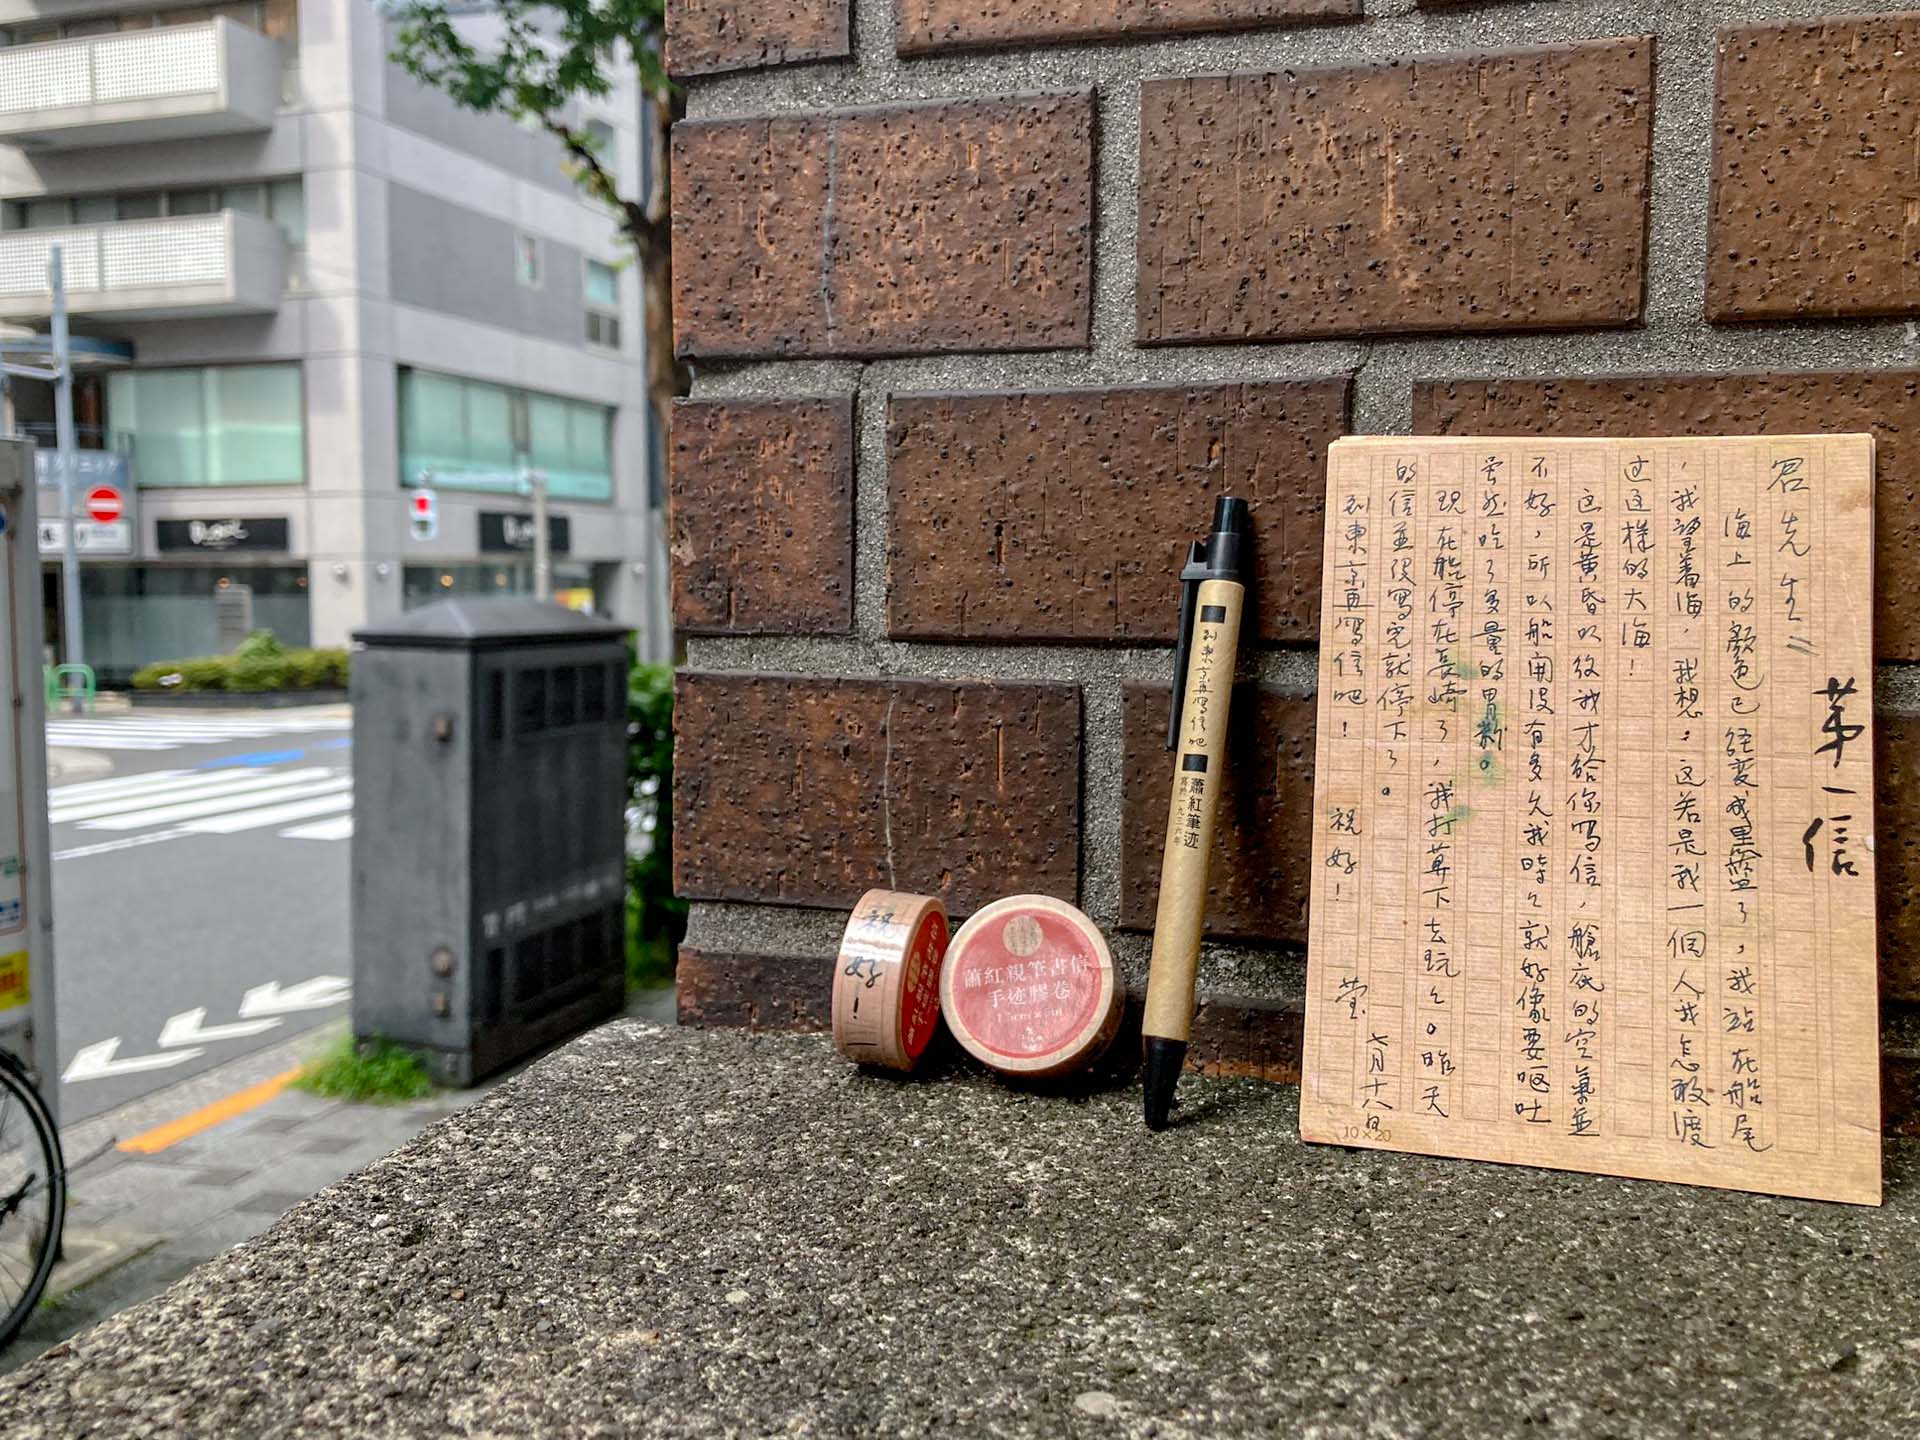 君先生
海上的顏色已经变成黑藍了，我站在船尾
，我望着海，我想，这若是我一個人我怎敢渡
过这樣的大海！
这是黄昏以後我才给你写信，艙底的空氣並
不好，所以船開没有多久我時々就好像要呕吐
虽然吃了多量的胃粉。
现在船停在長崎了，我打算下去玩々。昨天
的信並没写完就停下了。
到東京再写信吧！　祝好！
莹
七月十八日
第一信
10×20
到東京再写信吧
蕭紅筆迹
寫於一九三六年
祝好！
蕭紅親筆書信
手迹膠卷
クリニック